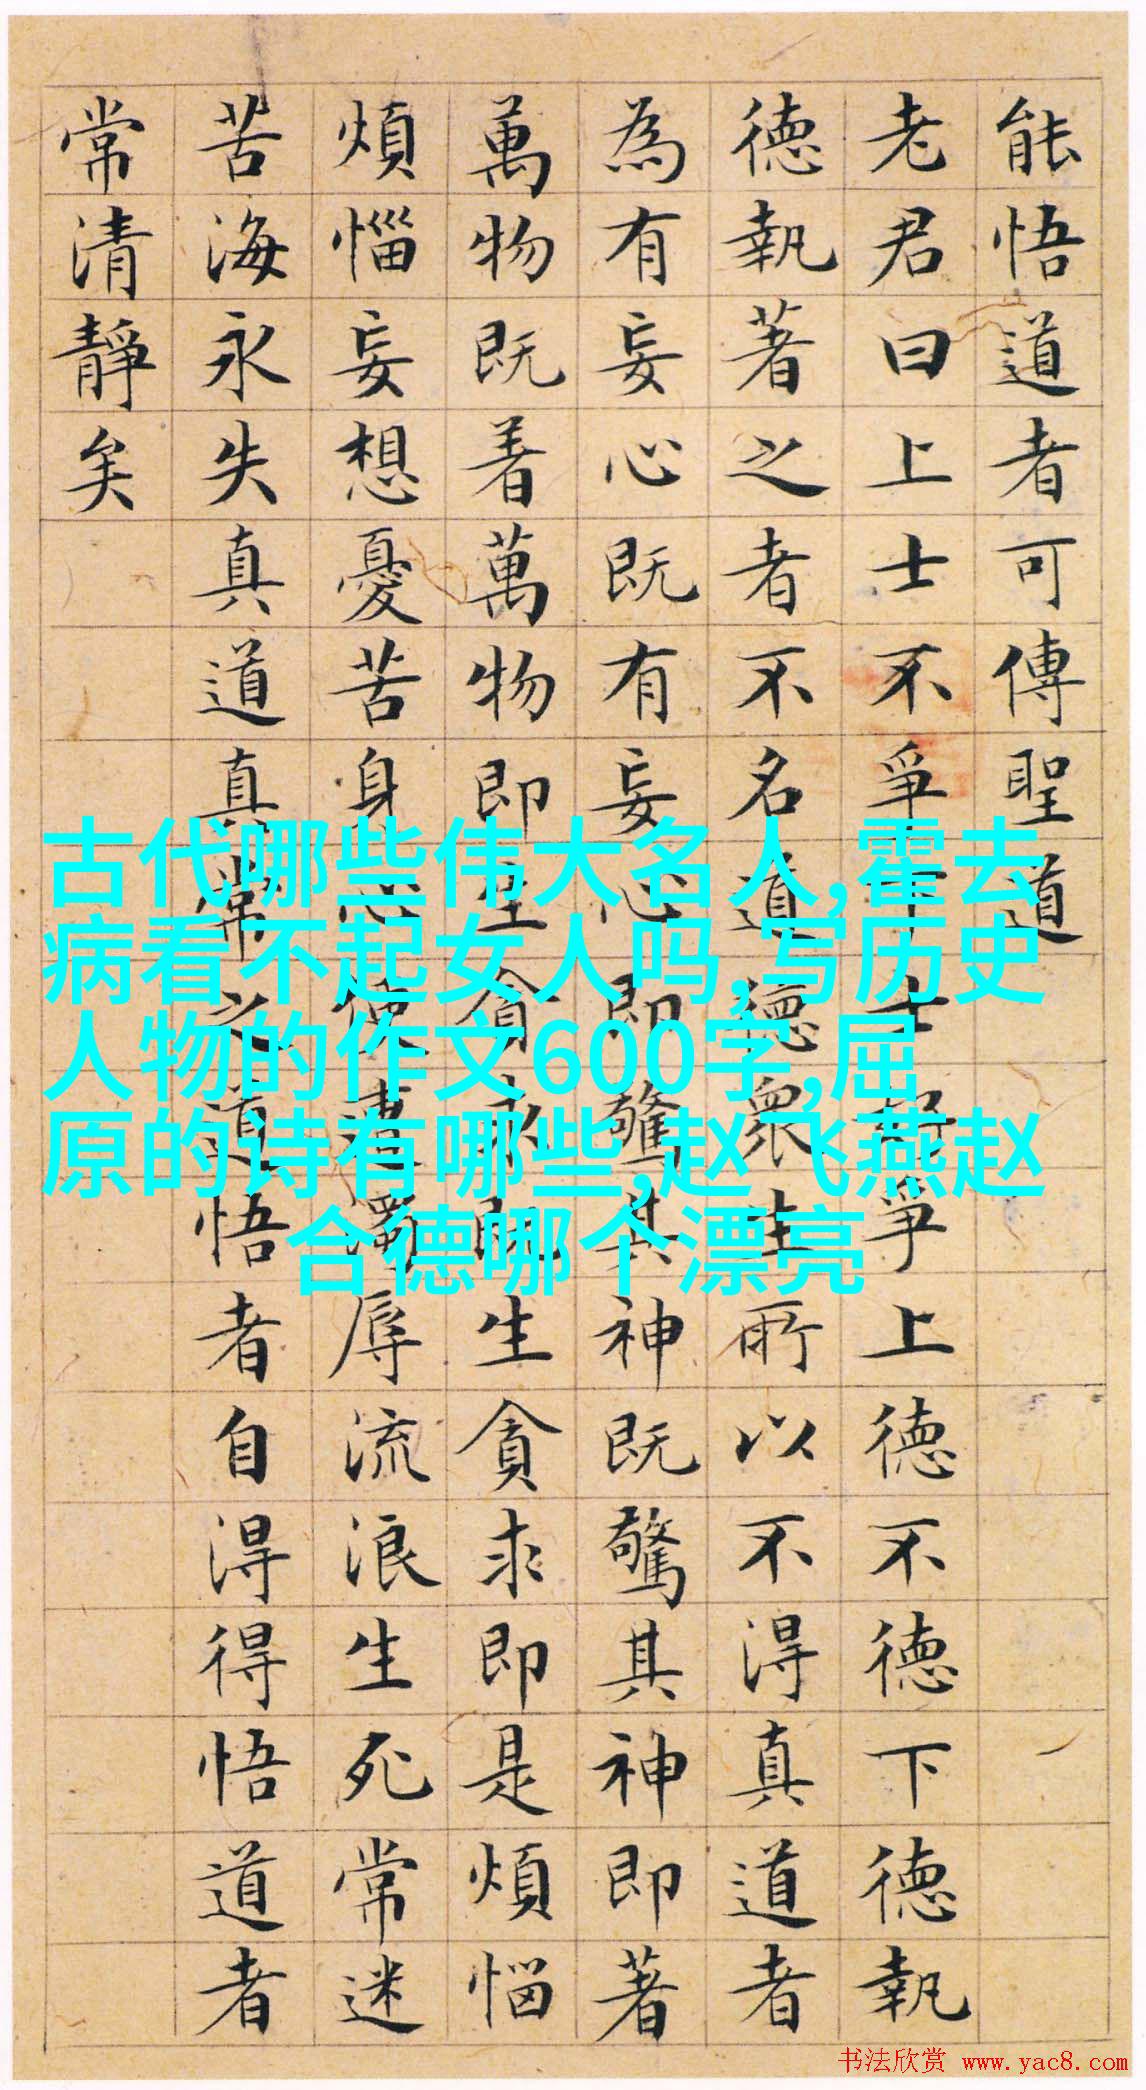 能悟道者可傳聖道
老君曰上士不爭下士好爭上德不德下德執
德執著之者不名道德眾生所以不得真道者
為有妄心既有妄心即驚其神既驚其神即著
萬物既着萬物即生貪求既生貪求即是煩惱
煩惱妄想憂苦身心便遭濁辱流浪生死常迷
苦海永失真道真常之道悟者自得得悟道者
常清靜矣
古代哪些伟大名人,霍去
病看不起女人吗,写历史
人物的作文600字,屈
原的诗有哪些,赵飞燕赵
合德哪个漂亮
书法欣赏 www.yac8.com